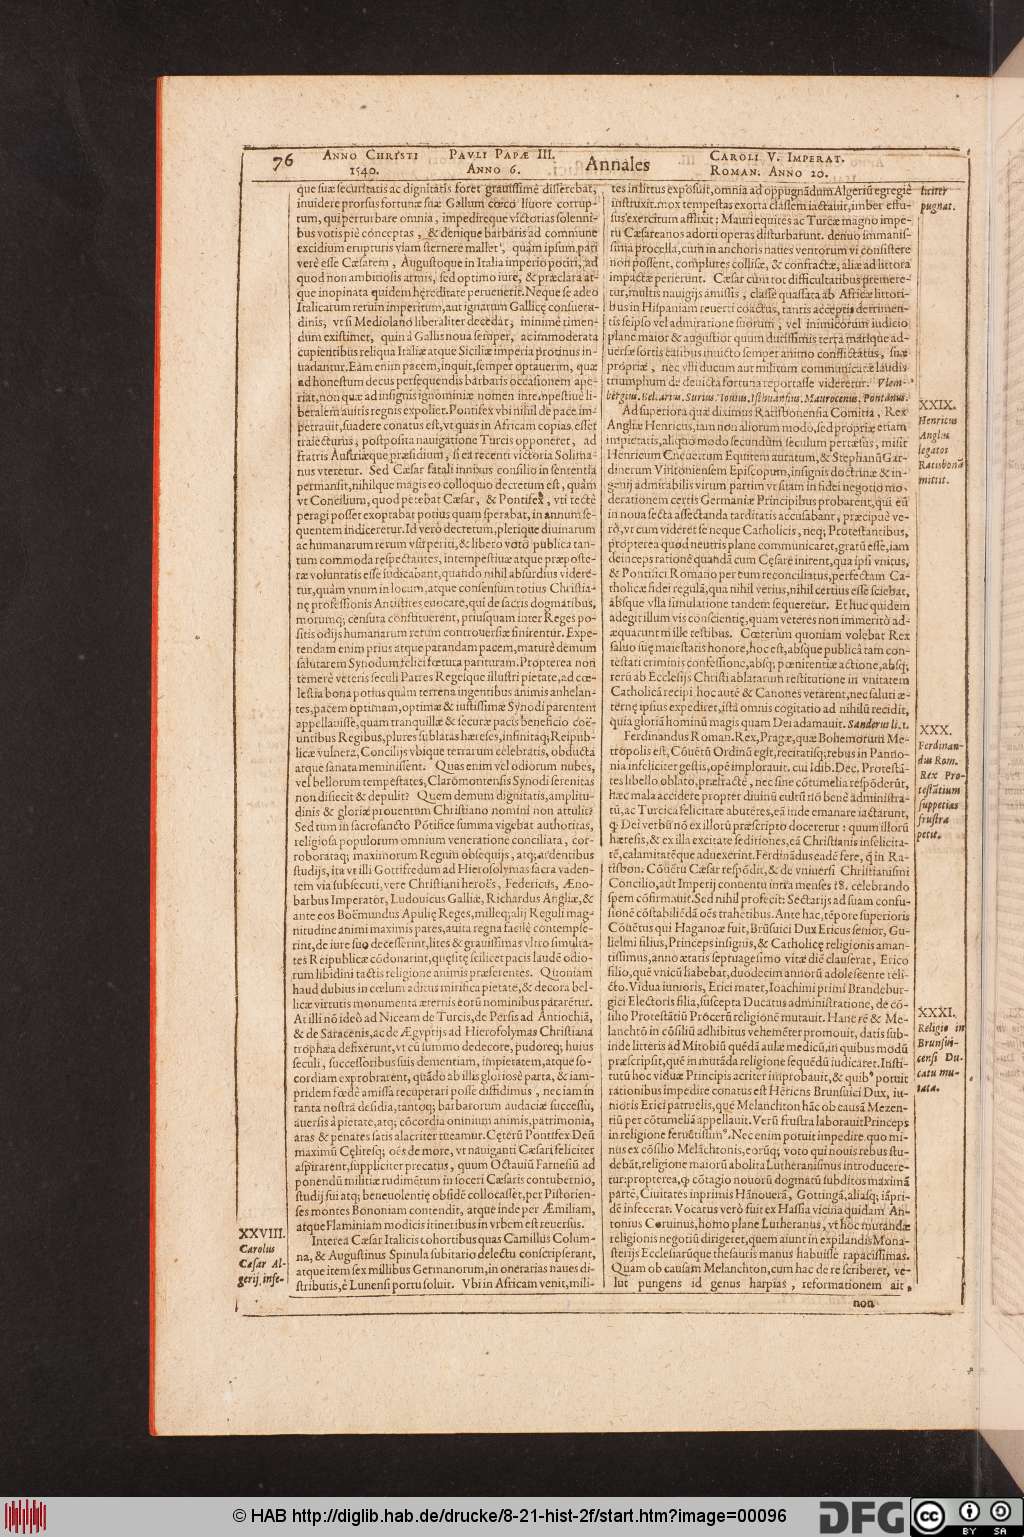 76 ANNO CHRISTI 1540. PAVLI PAPÆ III. ANNO 6. Annales CAROLI V. IMPERAT. ROMAN. ANNO 20.
que suæ securitatis ac dignitatis foret grauissimè disserebat,
inuidere prorsus fortunæ suæ Gallum cœco liuore corrup-
tum, qui perturbare omnia, impedireque victorias solenni-
bus votis piè conceptas, & denique barbaris ad commune
excidium erupturis viam sternere mallet, quàm ipsum pari
verè esse Cæsarem, Augustoque in Italia imperio potiri, ad
quod non ambitiosis armis, sed optimo iure, & præclara at-
que inopinata quidem hęreditate peruenerit. Neque se adeo
Italicarum rerum imperitum, aut ignarum Gallicę consuetu-
dinis, vt si Mediolano liberaliter decedat, minimè timen-
dum existimet, quin à Gallis noua semper, ac immoderata
cupientibus reliqua Italiæ atque Siciliæ imperia protinus in-
uadantur. Eam enim pacem, inquit, semper optauerim, quæ
ad honestum decus persequendis barbaris occasionem ape-
riat, non quæ ad insignis ignominiæ nomen intempestiue li-
beralem auitis regnis expoliet. Pontifex vbi nihil de pace im-
petrauit, suadere conatus est, vt quas in Africam copias esset
traiecturus, postposita nauigatione Turcis opponeret, ad
fratris Austriæque præsidium, si ea recenti victoria Solima-
nus vteretur. Sed Cæsar fatali innixus consilio in sententia
permansit, nihilque magis eo colloquio decretum est, quàm
vt Concilium, quod petebat Cæsar, & Pontifex, vti tectè
peragi posset exoptabat potius quam sperabat, in annum se-
quentem indiceretur. Id verò decretum, plerique diuinarum
ac humanarum rerum vsu periti, & libero voto publica tan-
tum commoda respectantes, intempestiuæ atque præposte-
ræ voluntatis esse iudicabant, quando nihil absurdius videre-
tur, quàm vnum in locum, atque consensum totius Christia-
nę professionis Antistites euocare, qui de sacris dogmatibus,
morumq; censura constituerent, priusquam inter Reges po-
sitis odijs humanarum rerum controuersiæ finirentur. Expe-
tendam enim prius atque parandam pacem, maturè demum
salutarem Synodum felici fœtura parituram. Propterea non
temerè veteris seculi Patres Regesque illustri pietate, ad cœ-
lestia bona potius quàm terrena ingentibus animis anhelan-
tes, pacem optimam, optimæ & iustissimæ Synodi parentem
appellauisse, quam tranquillæ & securæ pacis beneficio coë-
untibus Regibus, plures sublatas hæreses, infinitaq; Reipub-
licæ vulnera, Concilijs vbique terrarum celebratis, obducta
atque sanata meminissent. Quas enim vel odiorum nubes,
vel bellorum tempestates, Claromontensis Synodi serenitas
non disiecit & depulit? Quem demum dignitatis, amplitu-
dinis & gloriæ prouentum Christiano nomini non attulit?
Sed tum in sacrosancto Pōtifice summa vigebat authoritas,
religiosa populorum omnium veneratione conciliata, cor-
roborataq; maximorum Regum obsequijs, atq; ardentibus
studijs, ita vt illi Gottifredum ad Hierosolymas sacra vaden-
tem via subsecuti, vere Christiani heroës, Federicus, Æno-
barbus Imperator, Ludouicus Galliæ, Richardus Angliæ, &
ante eos Boëmundus Apulię Reges, milleq; alij Reguli mag-
nitudine animi maximis pares, auita regna facilè contempse-
rint, de iure suo decesserint, lites & grauissimas vltro simulta-
tes Reipublicæ cōdonarint, quęsitę scilicet pacis laudē odio-
rum libidini tactis religione animis præferentes. Quoniam
haud dubius in cœlum aditus mirifica pietate, & decora bel-
licæ virtutis monumenta æternis eorū nominibus pararētur.
At illi nō ideò ad Niceam de Turcis, de Persis ad Antiochiā,
& de Saracenis, ac de Ægyptijs ad Hierosolymas Christiana
trophæa defixerunt, vt cū summo dedecore, pudoreq; huius
seculi, successoribus suis dementiam, impietatem, atque so-
cordiam exprobrarent, quādo ab illis gloriosè parta, & iam-
pridem fœdè amissa recuperari posse diffidimus, nec iam in
tanta nostra desidia, tantoq; barbarorum audaciæ successu,
auersis à pietate, atq; cōcordia omnium animis, patrimonia,
aras & penates satis alacriter tueamur. Cęterū Pontifex Deū
maximū Cęlitesq; oēs de more, vt nauiganti Cæsari feliciter
aspirarent, suppliciter precatus, quum Octauiū Farnesiū ad
ponendū militiæ rudimētum in soceri Cæsaris contubernio,
studij sui atq; beneuolentię obsidē collocasset, per Pistorien-
ses montes Bononiam contendit, atque inde per Æmiliam,
atque Flaminiam modicis itineribus in vrbem est reuersus.
XXVIII. Carolus Cæsar Algerij infe-
Interea Cæsar Italicis cohortibus quas Camillus Colum-
na, & Augustinus Spinula subitario delectu conscripserant,
atque item sex millibus Germanorum, in onerarias naues di-
stributis, è Lunensi portu soluit. Vbi in Africam venit, mili-
tes in littus exposuit, omnia ad oppugnādum Algeriū egregiè
instruxit. mox tempestas exorta classem iactauit, imber effu-
sus exercitum afflixit: Mauri equites ac Turcæ magno impe-
tu Cæsareanos adorti operas disturbarunt. denuo immanis-
sima procella, cum in anchoris naues ventorum vi consistere
non possent, complures collisæ, & confractæ, aliæ ad littora
impactæ perierunt. Cæsar cùm tot difficultatibus premere-
tur, multis nauigijs amissis, classe quassata ab Africæ littori-
bus in Hispaniam reuerti coactus, tantis acceptis detrimen-
tis seipso vel admiratione suorum, vel inimicorum iudicio
plane maior & augustior quum durissimis terra marique ad-
uersæ sortis casibus inuicto semper animo conflictatus, suæ
propriæ, nec vlli ducum aut militum communicatæ laudis
triumphum de deuicta fortuna reportasse videretur. Vlem-
bergius. Belcarius. Surius. Iouius. Isthuanfius. Maurocenus. Pontanus.
liciter pugnat.
XXIX. Henricus Angliæ legatos Ratisbonā mittit.
Ad superiora quæ diximus Ratisbonensia Comitia, Rex
Angliæ Henricus, iam non aliorum modo, sed propriæ etiam
impietatis, aliquo modo secundùm seculum pertæsus, misit
Henricum Cneuetum Equitem auratum, & Stephanū Gar-
dinerum Vintoniensem Episcopum, insignis doctrinæ & in-
genij admirabilis virum partim vt sitam in fidei negotio mo-
derationem certis Germaniæ Principibus probarent, qui eū
in noua secta affectanda tarditatis accusabant, præcipuè ve-
rò, vt cum videret se neque Catholicis, neq; Protestantibus,
propterea quod neutris plane communicaret, gratū esse, iam
deinceps rationē quandā cum Cęsare inirent, qua ipsi vnicus,
& Pontifici Romano per eum reconciliatus, perfectam Ca-
tholicæ fidei regulā, qua nihil verius, nihil certius esse sciebat,
absque vlla simulatione tandem sequeretur. Et huc quidem
adegit illum vis conscientię, quam veteres non immeritò ad-
æquarunt mille testibus. Cœterùm quoniam volebat Rex
saluo suę maiestatis honore, hoc est, absque publicâ tam con-
testati criminis confessione, absq; pœnitentiæ actione, absq;
rerū ab Ecclesijs Christi ablatarum restitutione in vnitatem
Catholicā recipi hoc autē & Canones vetarent, nec saluti æ-
ternę ipsius expediret, istā omnis cogitatio ad nihilū recidit,
quia gloriā hominū magis quam Dei adamauit. Sanderus li. 1.
XXX. Ferdinandus Rom. Rex Protestātium suppetias frustra petit.
Ferdinandus Roman. Rex, Pragæ, quæ Bohemorum Me-
tropolis est, Cōuētū Ordinū egit, recitatisq; rebus in Panno-
nia infeliciter gestis, opē implorauit. cui Idib. Dec. Protestā-
tes libello oblato, præfractè, nec sine cōtumelia respōderūt,
hæc mala accidere propter diuinū cultū nō benè administra-
tū, ac Turcica felicitate abutētes, eā inde emanare iactarunt,
q; Dei verbū nō ex illorū præscripto doceretur: quum illorū
hæresis, & ex illa excitatę seditiones, eā Christianis infelicita-
tē, calamitatēque aduexerint. Ferdinādus eadē fere, q̃ in Ra-
tisbon. Cōuētu Cæsar respōdit, & de vniuersi Christianismi
Concilio, aut Imperij conuentu intra menses 18. celebrando
spem cōfirmauit. Sed nihil profecit: Sectarijs ad suam confu-
sionē cōstabiliēdā oēs trahētibus. Ante hac, tēpore superioris
Cōuētus qui Haganoæ fuit, Brūsuici Dux Ericus senior, Gu-
lielmi filius, Princeps insignis, & Catholicę religionis aman-
tissimus, anno ætatis septuagesimo vitæ diē clauserat, Erico
filio, quē vnicū habebat, duodecim annorū adolescente reli-
cto. Vidua iunioris, Erici mater, Ioachimi primi Brandebur-
gici Electoris filia, suscepta Ducatus administratione, de cō-
silio Protestātiū Procerū religionē mutauit. Hanc rē & Me-
lanchtō in cōsiliū adhibitus vehemēter promouit, datis sub-
inde litteris ad Mitobiū quēdā aulæ medicū, in quibus modū
præscripsit, quē in mutāda religione sequēdū iudicaret. Insti-
tutū hoc viduæ Principis acriter improbauit, & quib⁹ potuit
rationibus impedire conatus est Hēricus Brunsuici Dux, iu-
nioris Erici patruelis, quē Melanchton hāc ob causā Mezen-
tiū per cōtumeliā appellauit. Verū frustra laborauit Princeps
in religione feruētissim⁹. Nec enim potuit impedire, quo mi-
nus ex cōsilio Melāchtonis, eorūq; voto qui nouis rebus stu-
debāt, religione maiorū abolita Lutheranismus introducere-
tur: propterea, q̃ cōtagio nouorū dogmatū subditos maximā
partē, Ciuitates inprimis Hānouerā, Gottingā, aliasq; iāpri-
dē infecerat. Vocatus verò fuit ex Hassia vicina quidam An-
tonius Coruinus, homo plane Lutheranus, vt hoc mutandæ
religionis negotiū dirigeret, quem aiunt in expilandis Mona-
sterijs Ecclesiarūque thesauris manus habuisse rapacissimas.
Quam ob causam Melanchton, cum hac de re scriberet, ve-
lut pungens id genus harpias, reformationem ait,
XXXI. Religio in Brunsuicensi Ducatu mutata.
non
© HAB http://diglib.hab.de/drucke/8-21-hist-2f/start.htm?image=00096
DFG
cc BY SA